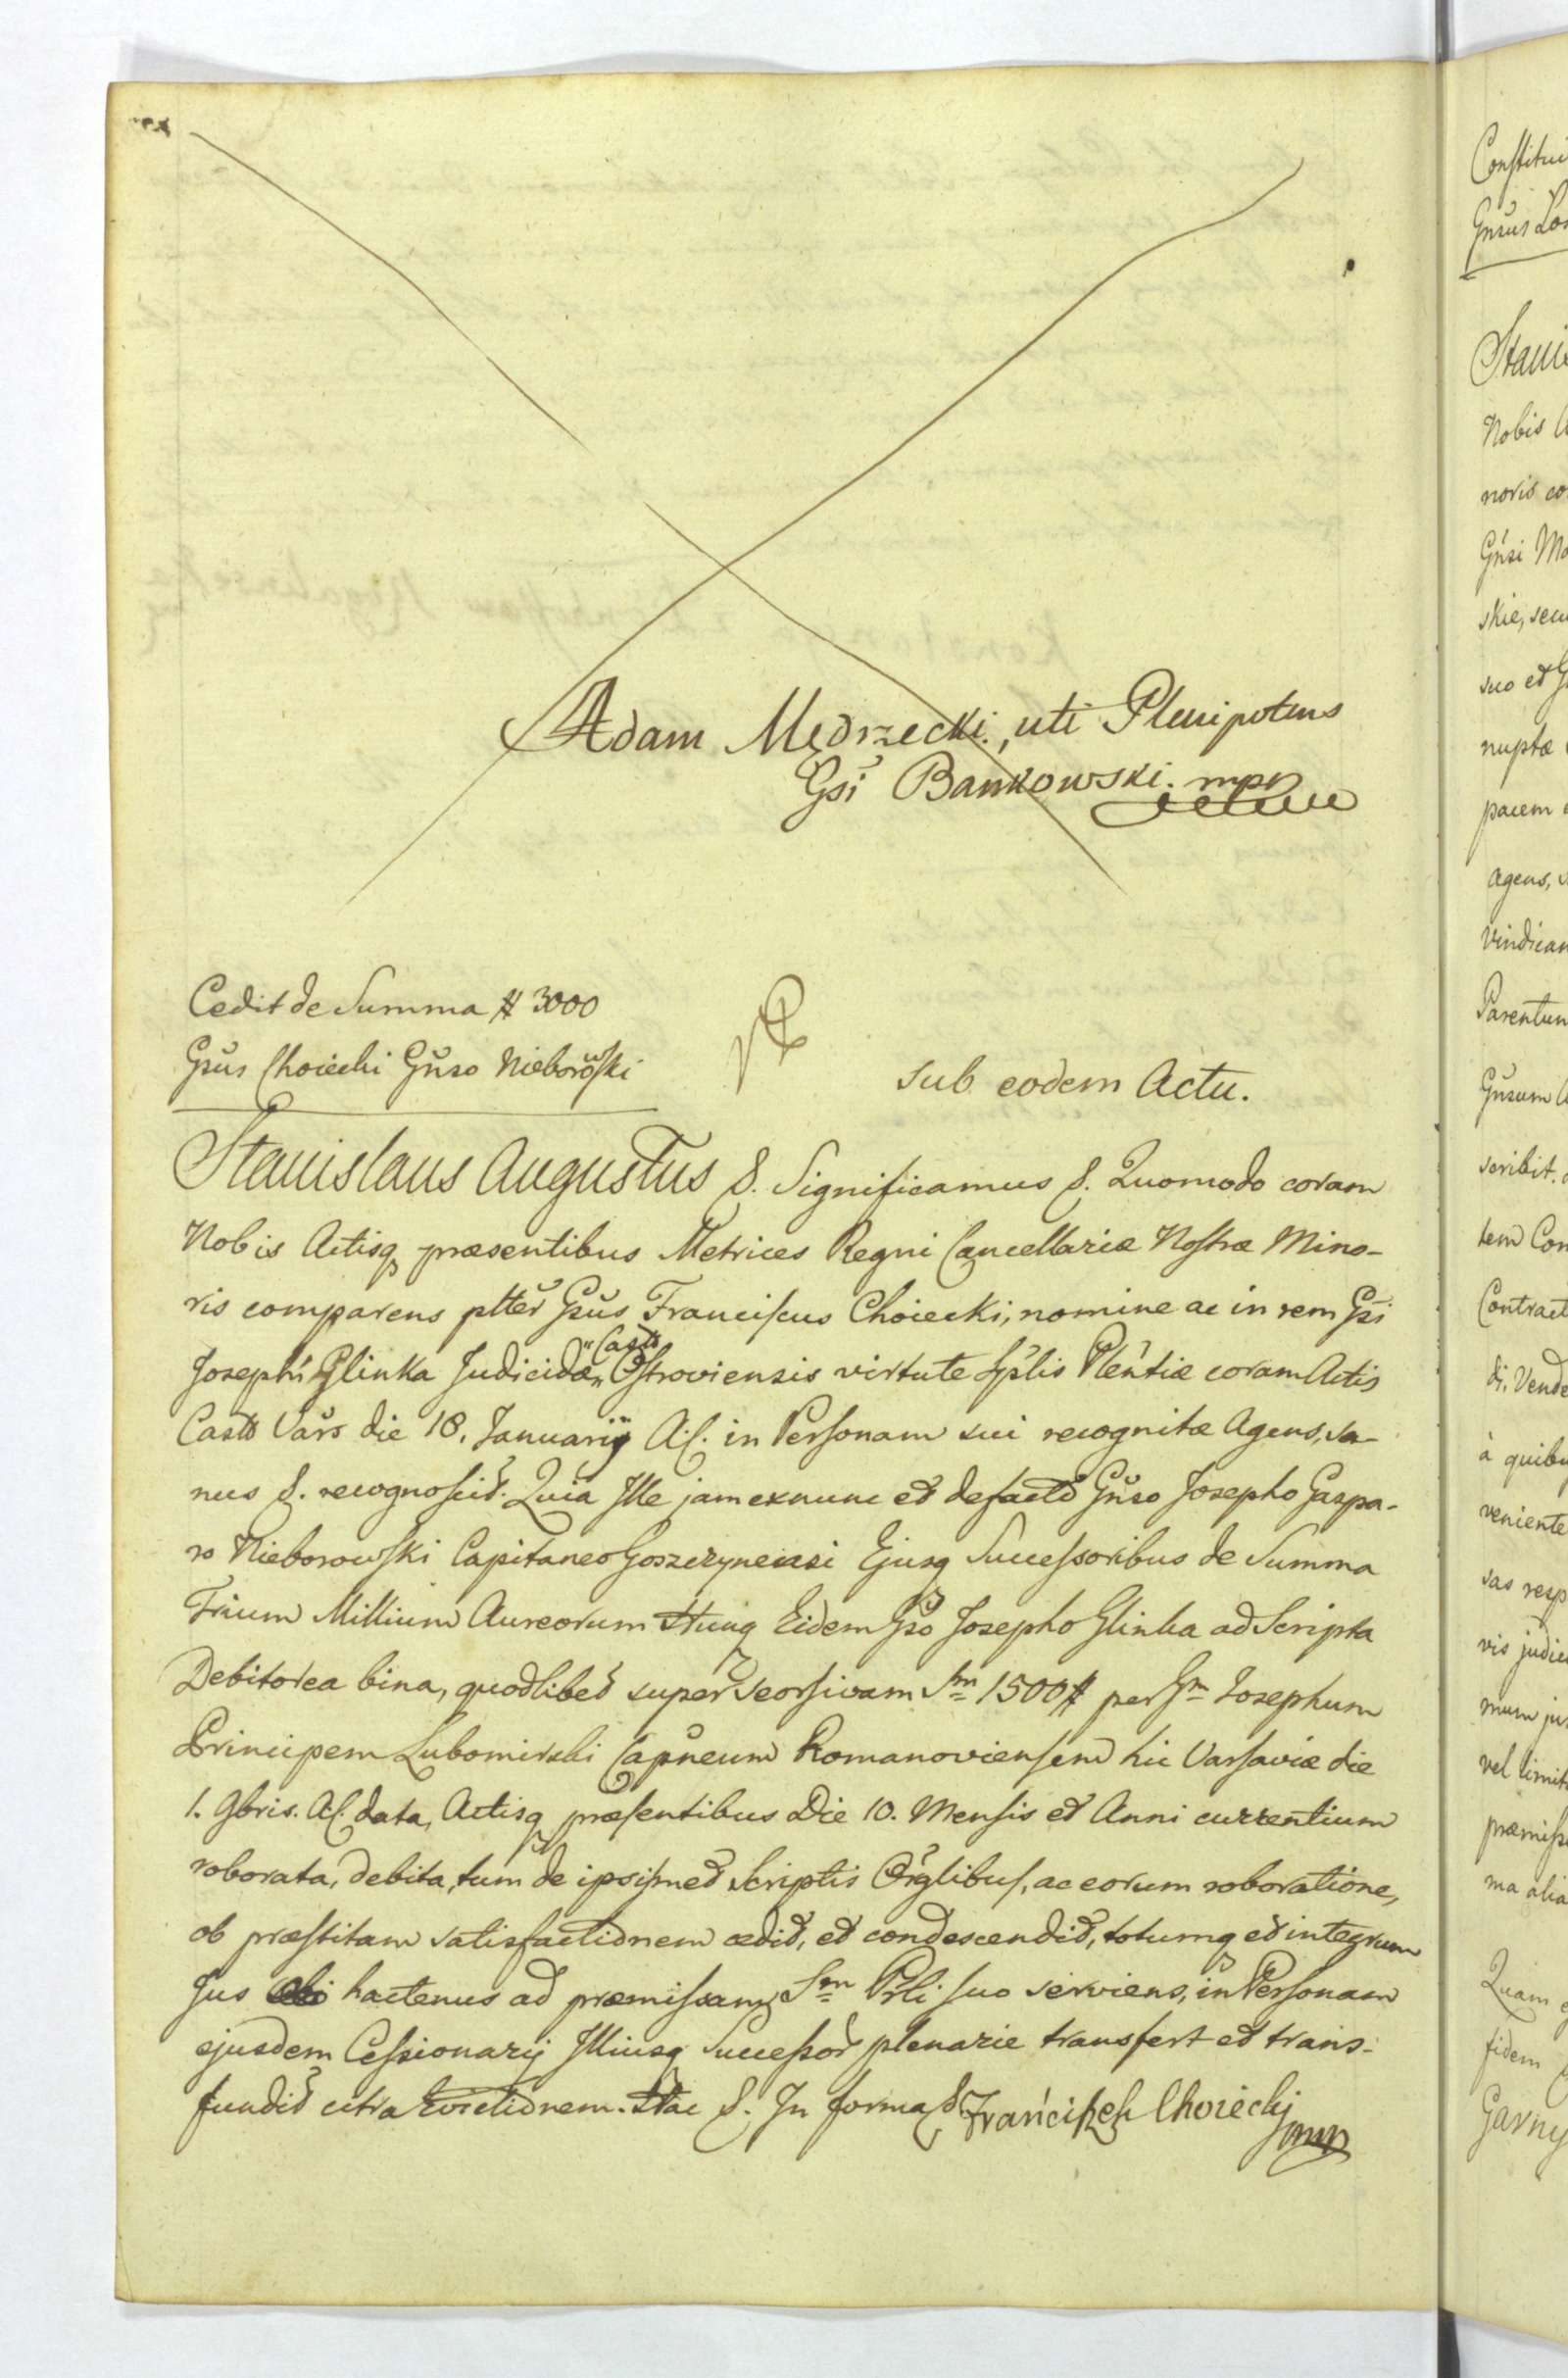 Adam Mędrzecki, uti Plenipotens
Gsi Bankowski. mpp
Cedit de Summa # 3000
Gsus Choiecki Gnso Nieborowski
Sub eodem Actu.
Stanislaus Augustus &. Significamus &. Quomodo coram
Nobis Actisq præsentibus Metrices Regni Cancellariæ Nostræ Mino-
ris comparens pltter Gsus Franciscus Choiecki, nomine ac in rem Gsi
Josephi Glinka Judicidæ "Castr" Ostroviensis virtute Splis Plentiæ coram Actis
Castr Vars die 18. Januarij A:C. in Personam sui recognitæ Agens, sa-
nus &. recognoscit. Quia Ille jam exnunc et defacto Gnso Josepho Gaspa-
ro Nieborowski Capitaneo Goszczynensi Ejusq Successoribus de Summa
Trium Millium Aureorum Hung Eidem Gso Josepho Glinka ad Scripta
Debitorea bina, quodlibet super seorsivam Sm 1500 # per Jm Josephum
Principem Lubomirski Capneum Romanoviensem hic Varsaviæ die
1. 9bris. A:C. data, Actisq præsentibus Die 10. Mensis et Anni currentium
roborata, debita, tum de ipsismet Scriptis Orglibus, ac eorum roboratione,
ob præstitam satisfactionem cedit, et condescendit, totumq et integrum
Jus hactenus ad præmissam Sm Prli suo serviens, in Personam
ejusdem Cessionarij Illiusq Successor plenarie transfert et trans-
fundit citra Evictionem. Hac &. In forma &. Franciszek Choiecki
mpp
Constitui
Gnsus Los
Stanis
Nobis A
noris co
Gnsi Ma
skie, secu
suo et G
nuptæ
pacem
agens, s
vindican
Parentum
Gnsum A
scribit.
tem Con
Contract
di, Vende
à quibu
veniente
sas resp
vis judic
mum jus
vel limit
præmiss
ma alia
Quam
fidem
Garny